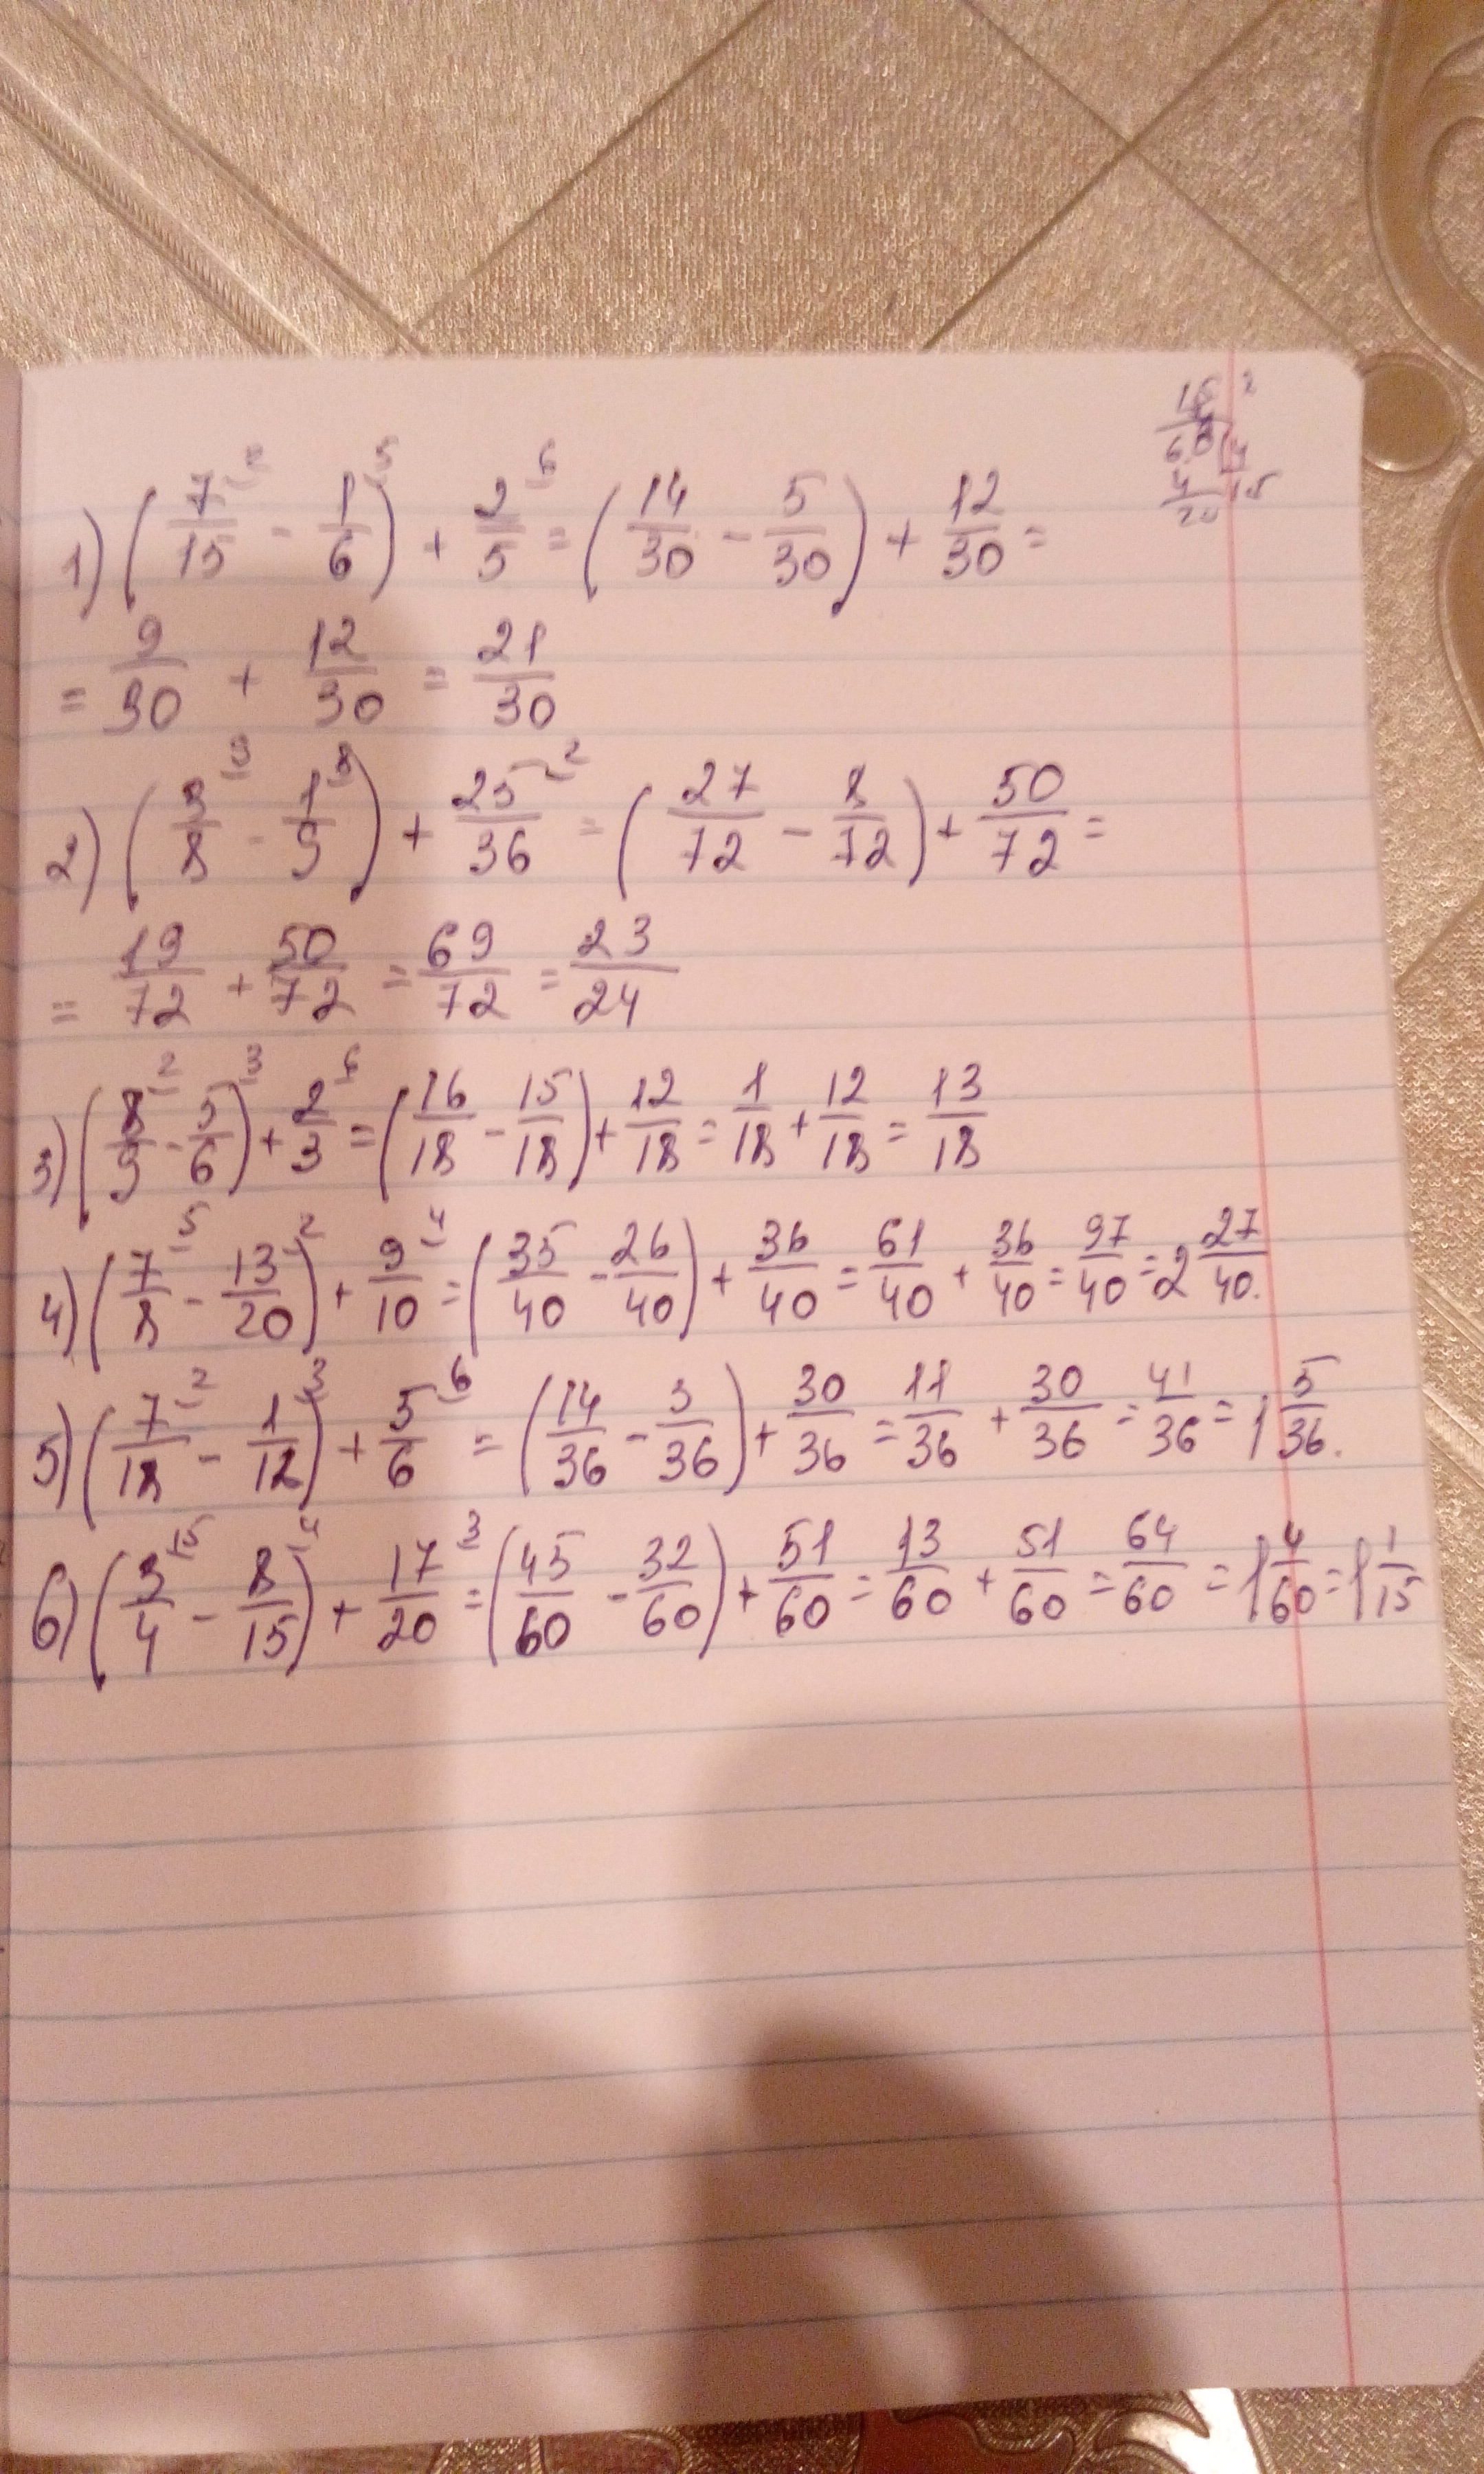 1) (7/15 - 1/6) + 2/5 = (14/30 - 5/30) + 12/30 =
= 9/30 + 12/30 = 21/30
2) (3/8 - 1/9) + 25/36 = (27/72 - 8/72) + 50/72 =
= 19/72 + 50/72 = 69/72 = 23/24
3) (8/9 - 5/6) + 2/3 = (16/18 - 15/18) + 12/18 = 1/18 + 12/18 = 13/18
4) (7/8 - 13/20) + 9/10 = (35/40 - 26/40) + 36/40 = 61/40 + 36/40 = 97/40 = 2 27/40.
5) (7/18 - 1/12) + 5/6 = (14/36 - 3/36) + 30/36 = 11/36 + 30/36 = 41/36 = 1 5/36.
6) (3/4 - 8/15) + 17/20 = (45/60 - 32/60) + 51/60 = 13/60 + 51/60 = 64/60 = 1 4/60 = 1 1/15